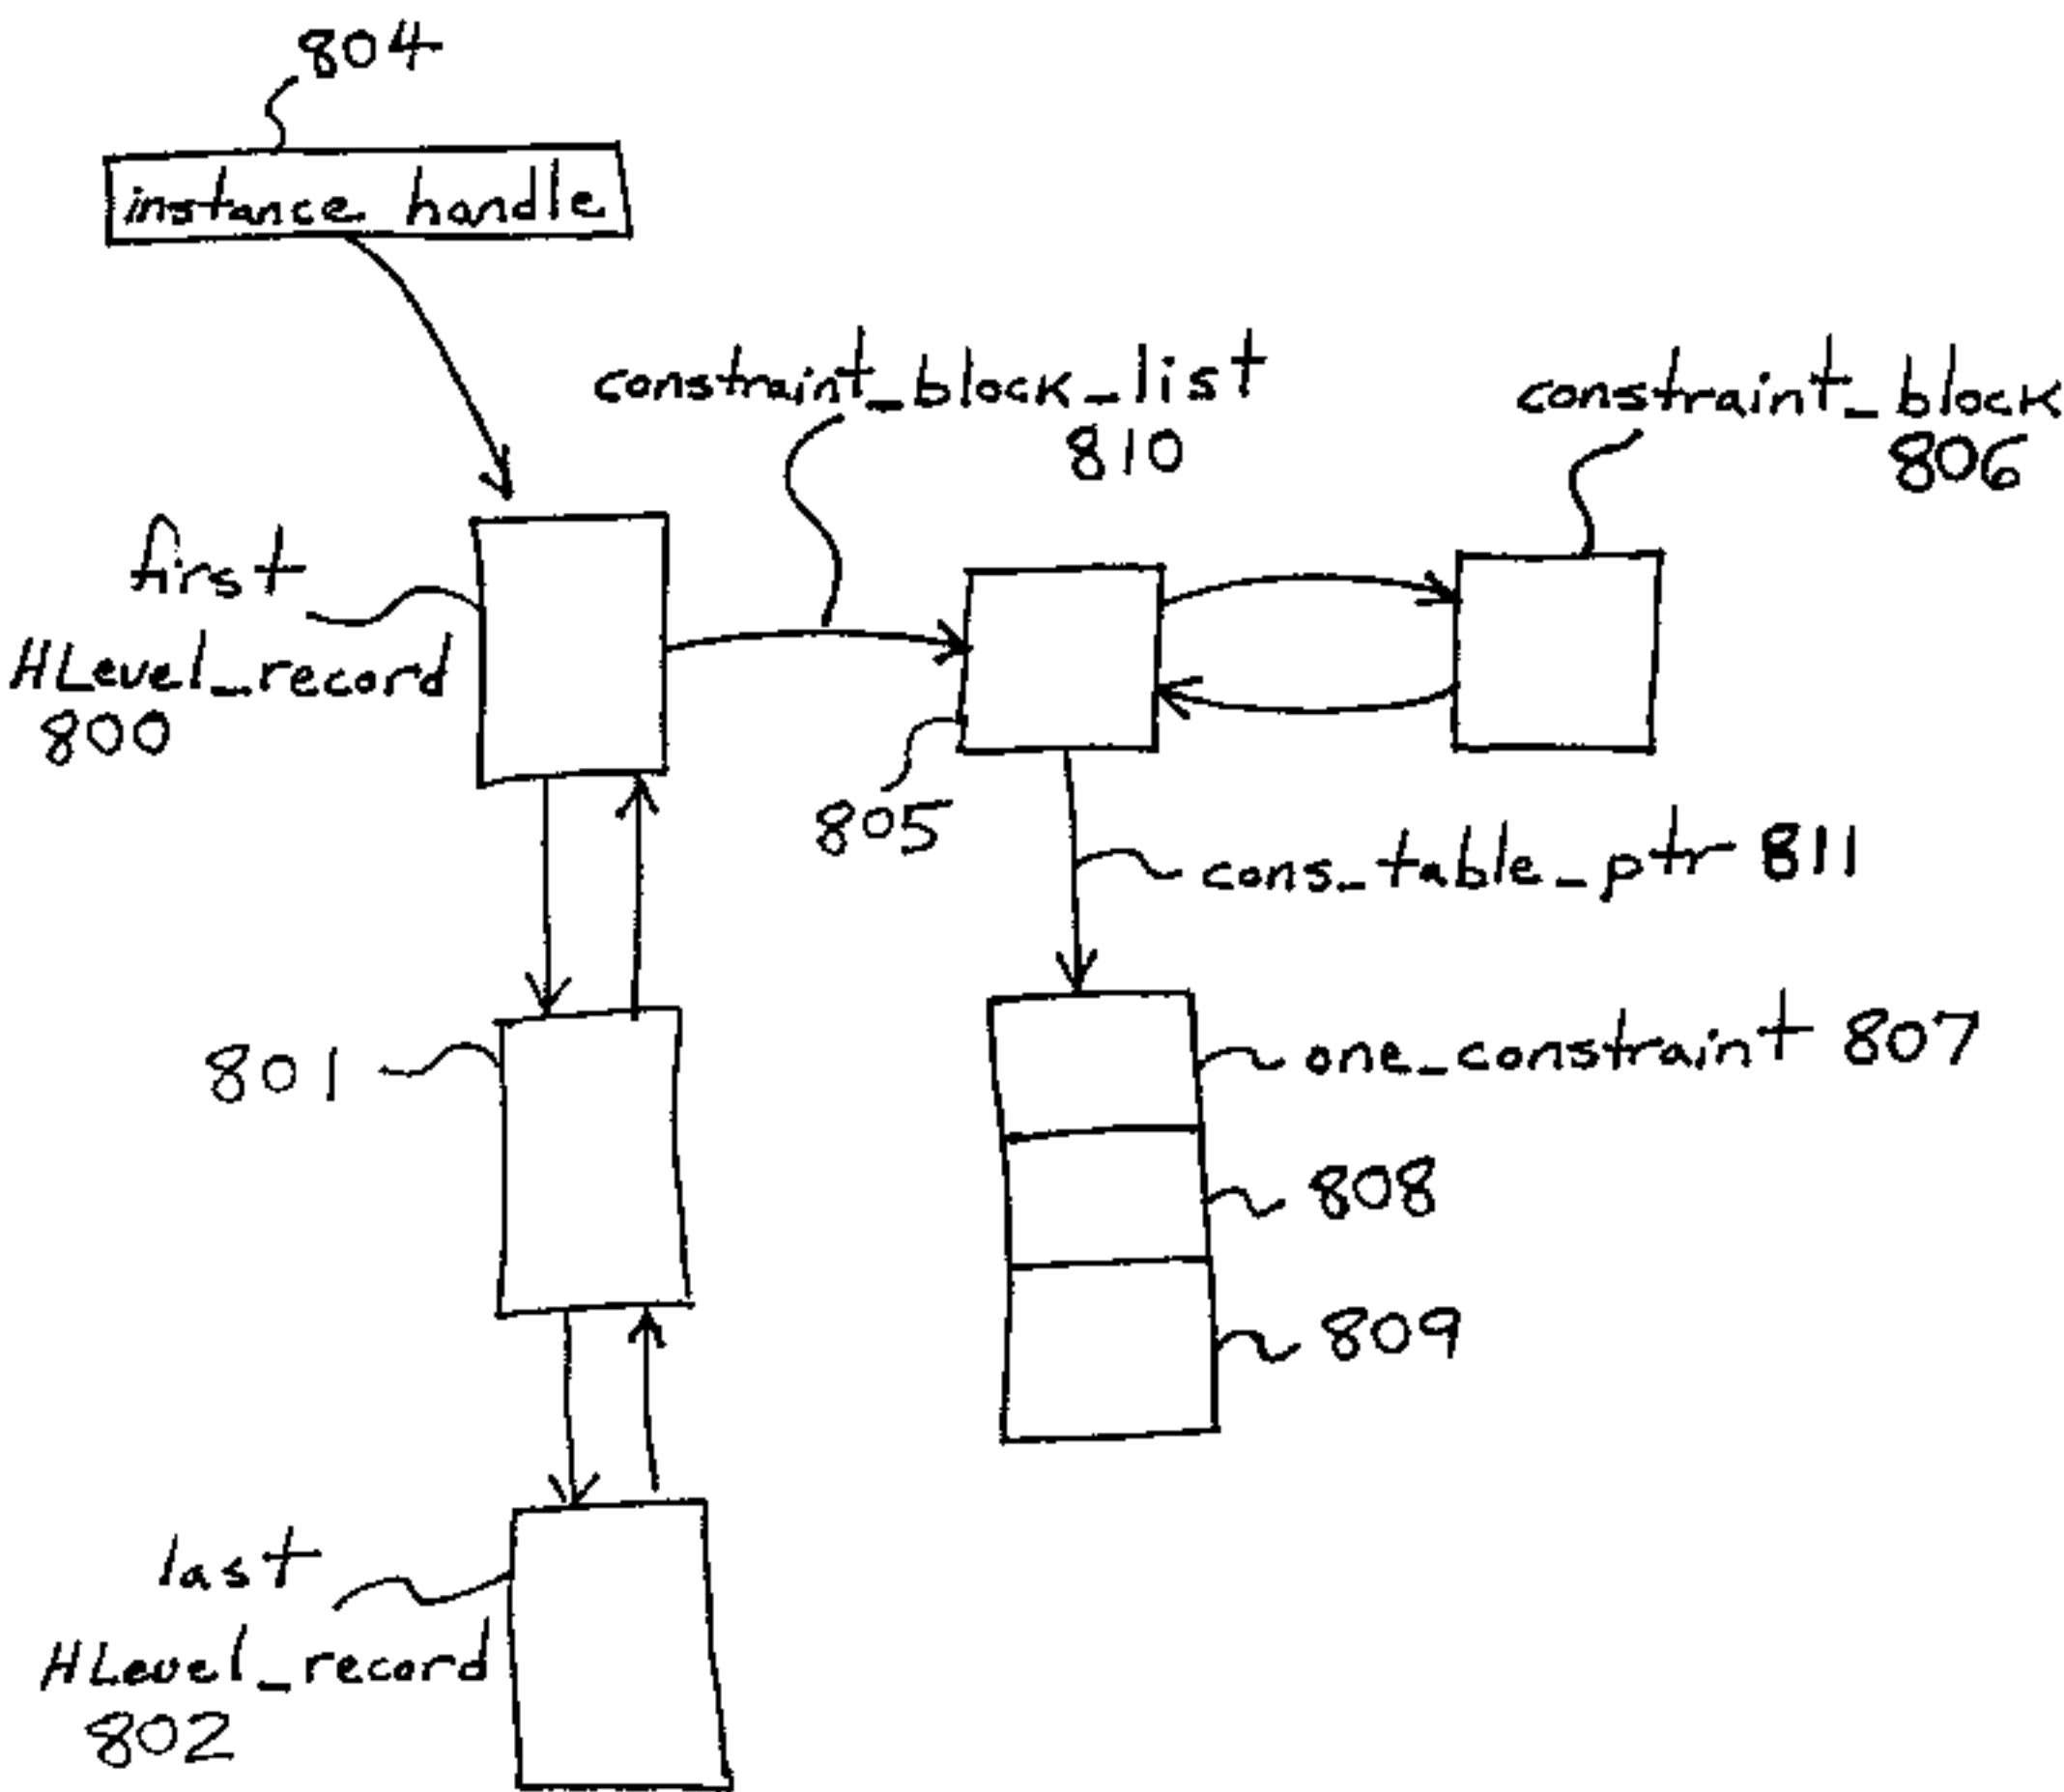 804
instance handle
constraint_block_list
810
constraint_block
806
first
HLevel_record
800
805
cons_table_ptr 811
801
one_constraint 807
808
809
last
HLevel_record
802